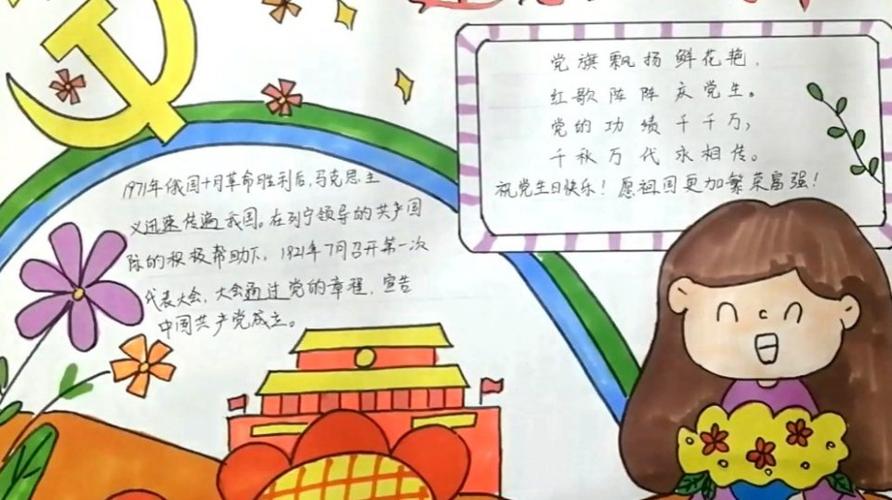 1971年俄国十月革命胜利后,马克思主
义迅速传遍我国。在列宁领导的共产国
际的积极帮助下,1921年7月召开第一次
代表大会,大会通过党的章程,宣告
中国共产党成立。
党旗飘扬鲜花艳,
红歌阵阵庆党生。
党的功绩千千万,
千秋万代永相传。
祝党生日快乐!愿祖国更加繁荣富强!